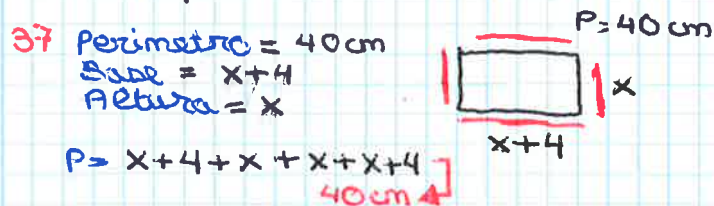 37 Perimetro = 40 cm
Base = x+4
Altura = x
P= 40 cm
x
x+4
P= x+4+x+x+x+4
40 cm